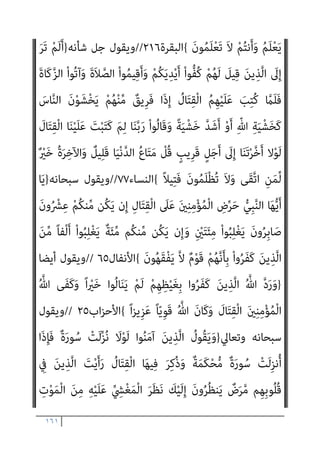 يَعْلَمُ وَأَنتُمْ لاَ تَعْلَمُونَ} البقرة٢١٦//ويقول جل شأنه{أَلَمْ تَرَ
إِلَى الَّذِينَ قِيلَ لَهُمْ كُفُّواْ أَيْدِيَكُمْ وَأَقِيمُواْ الصَّلاَةَ وَآتُواْ الزَّكَاةَ
فَلَمَّا كُتِبَ عَلَيْهِمُ الْقِتَالُ إِذَا فَرِيقٌ مِّنْهُمْ يَخْشَوْنَ النَّاسَ
كَخَشْيَةِ اللّهِ أَوْ أَشَدَّ خَشْيَةً وَقَالُواْ رَبَّنَا لِمَ كَتَبْتَ عَلَيْنَا الْقِتَالَ
لَوْلا أَخَّرْتَنَا إِلَى أَجَلٍ قَرِيبٍ قُلْ مَتَاعُ الدَّنْيَا قَلِيلٌ وَالآخِرَةُ خَيْرٌ
لِّمَنِ اتَّقَى وَلاَ تُظْلَمُونَ فَتِيلاً} النساء٧٧//ويقول سبحانه {يَا
أَيُّهَا النَّبِيُّ حَرِّضِ الْمُؤْمِنِينَ عَلَى الْقِتَالِ إِن يَكُن مِّنكُمْ عِشْرُونَ
صَابِرُونَ يَغْلِبُواْ مِئَتَيْنِ وَإِن يَكُن مِّنكُم مِّئَةٌ يَغْلِبُواْ أَلْفاً مِّنَ
الَّذِينَ كَفَرُواْ بِأَنَّهُمْ قَوْمٌ لاَّ يَفْقَهُونَ} الأنفال٦٥ //ويقول أيضا
{وَرَدَّ اللَّهُ الَّذِينَ كَفَرُوا بِغَيْظِهِمْ لَمْ يَنَالُوا خَيْراً وَكَفَى اللَّهُ
الْمُؤْمِنِينَ الْقِتَالَ وَكَانَ اللَّهُ قَوِيّاً عَزِيزاً} الأحزاب٢٥ //ويقول
سبحانه وتعالي{وَيَقُولُ الَّذِينَ آمَنُوا لَوْلَا نُزِّلَتْ سُورَةٌ فَإِذَا
أُنزِلَتْ سُورَةٌ مُّحْكَمَةٌ وَذُكِرَ فِيهَا الْقِتَالُ رَأَيْتَ الَّذِينَ فِي
قُلُوبِهِم مَّرَضٌ يَنظُرُونَ إِلَيْكَ نَظَرَ الْمَغْشِيِّ عَلَيْهِ مِنَ الْمَوْتِ
١٦١